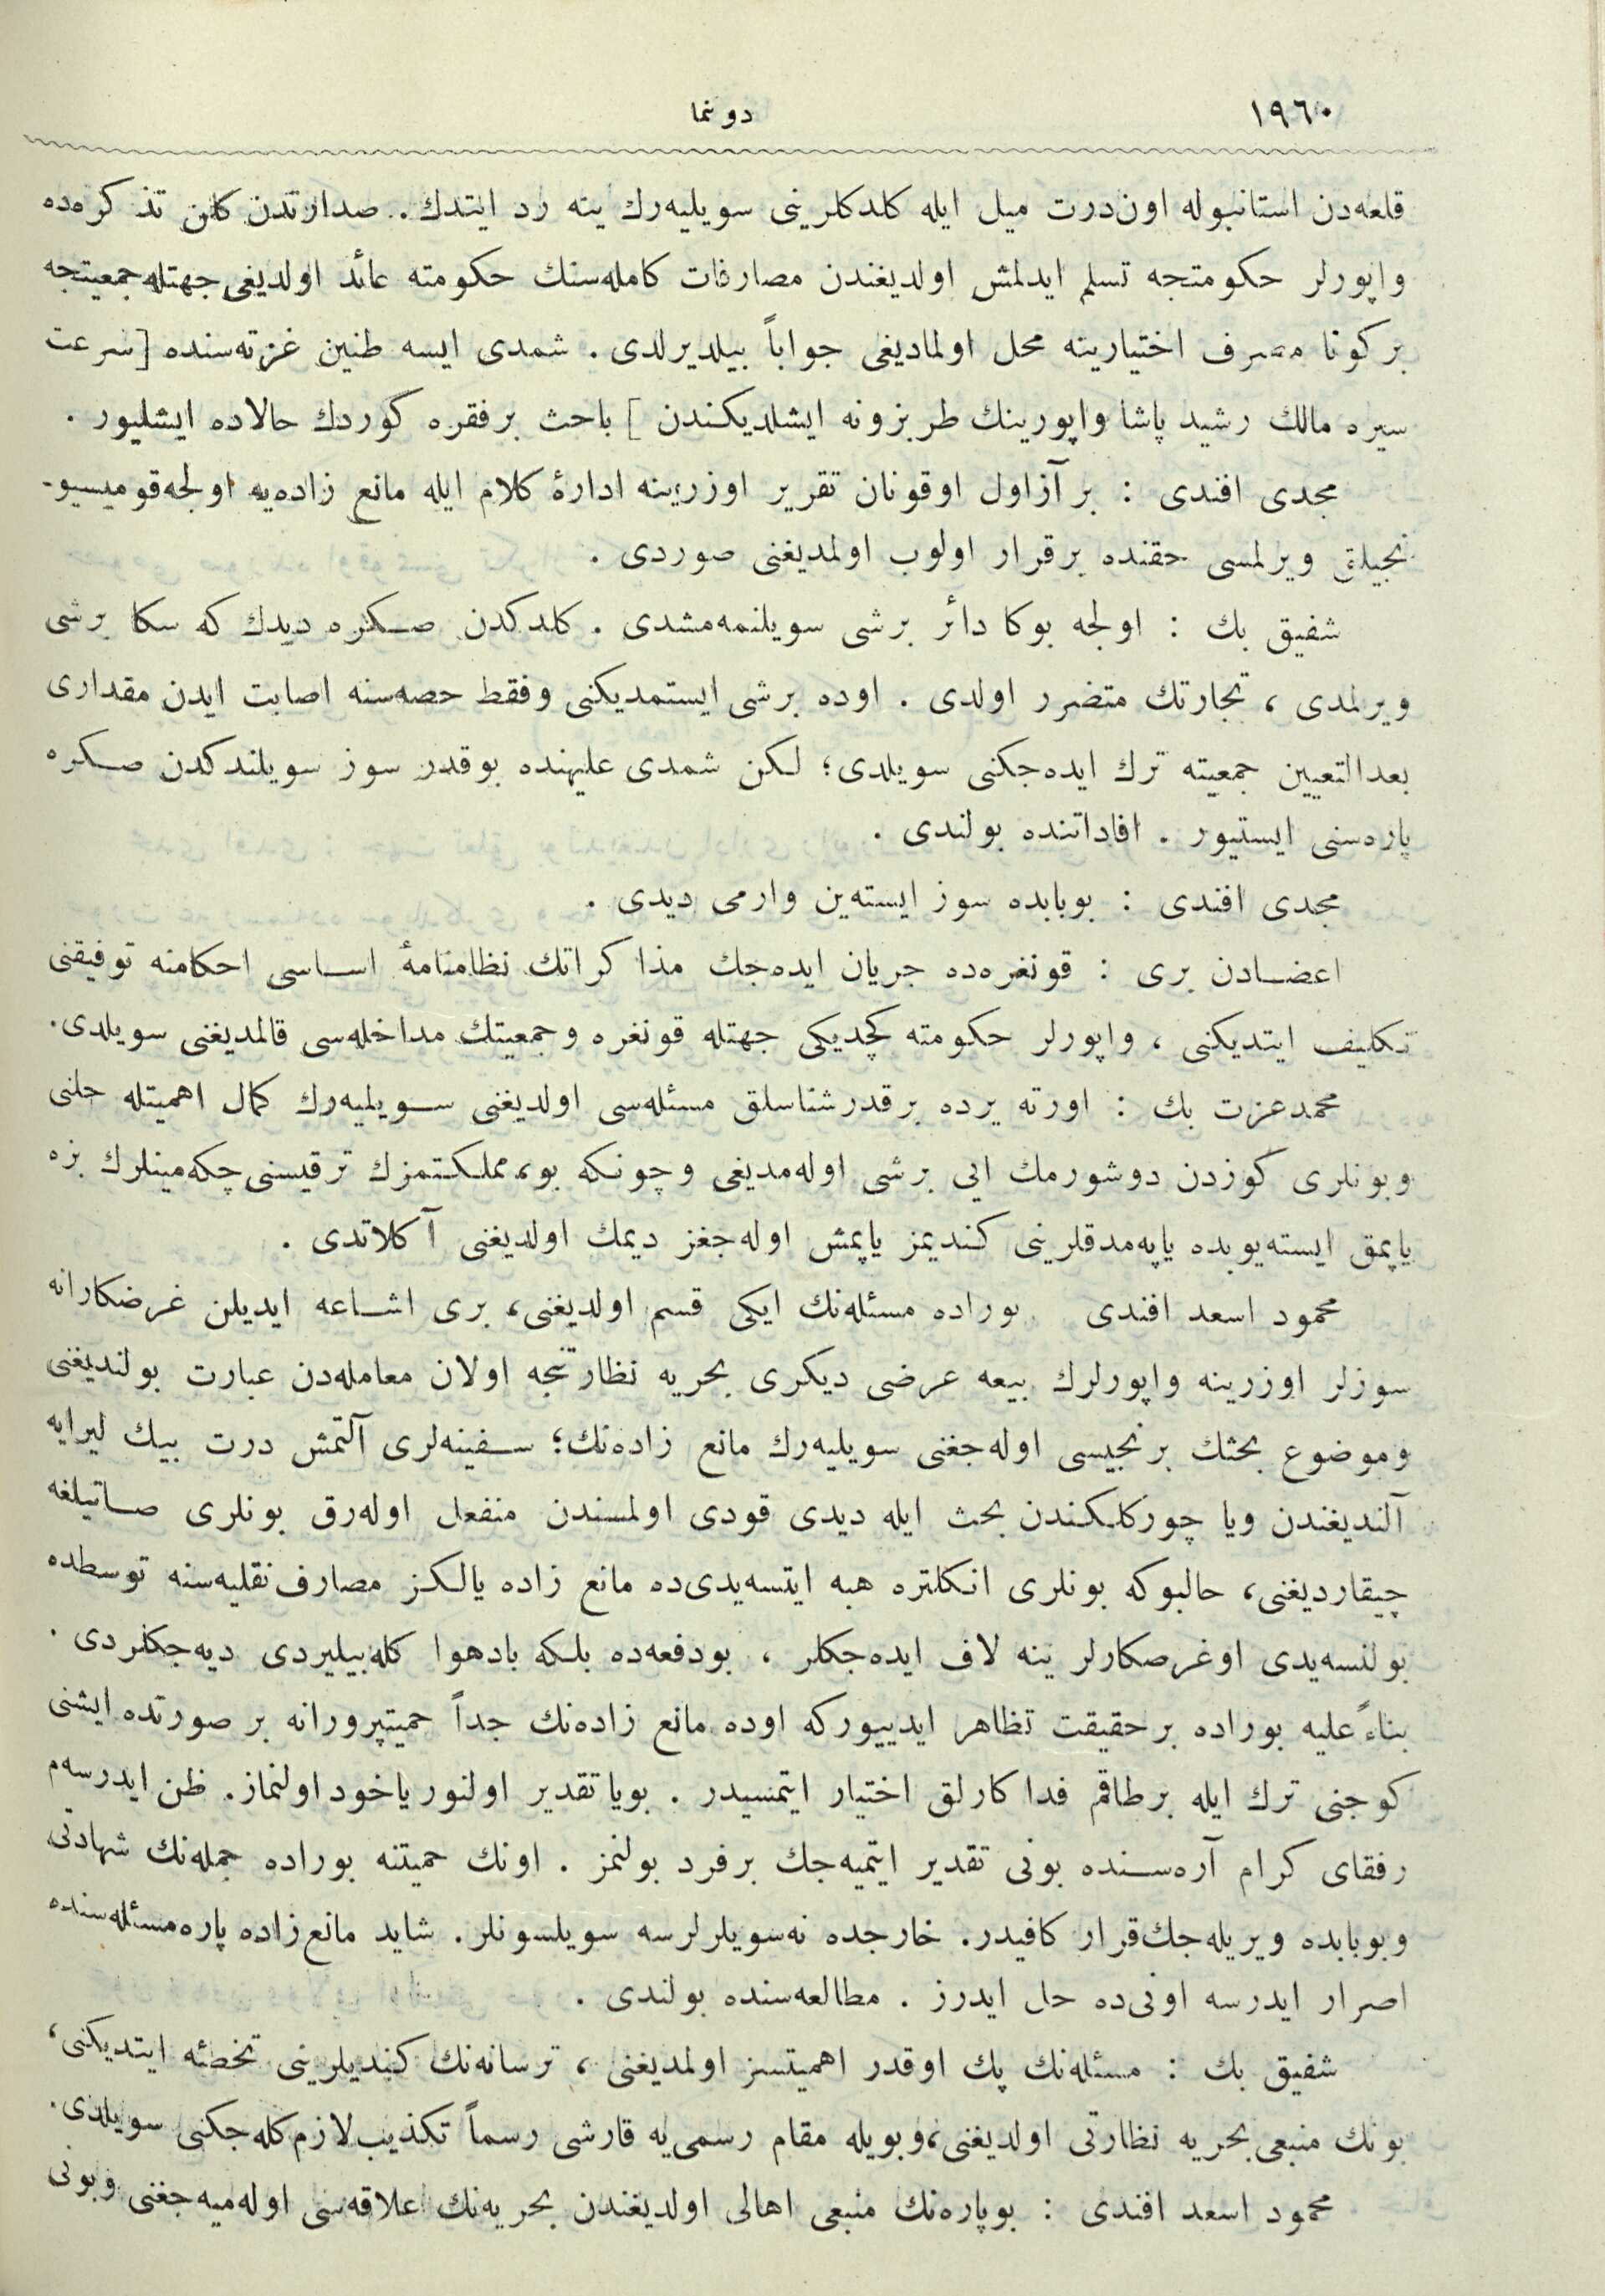 ١٩٦٠
دونما
قلعه‌دن استانبوله اون‌درت میل ایله كلدكلرینی سویلیه‌رك ینه رد ایتدك. صدارتدن كلن تذكره‌ده
واپورلر حكومتجه تسلم ایدلمش اولدیغندن مصارفات كامله‌سنك حكومته عائد اولدیغی جهتله جمعیتجه
بر كونا مصرف اختیارینه محل اولمادیغی جواباً بیلدیرلدی. شمدی ایسه طنین غزته‌سنده [سرعت
سیره مالك رشید پاشا واپورینك طربزونه ایشلدیكندن] باحث بر فقره كوردك حالاده ایشلیور.
مجدی افندی : بر آز اول اوقونان تقریر اوزرینه ادارۀ كلام ایله مانع زاده‌یه اولجه قومیسیو-
نجیلق ویرلمسی حقنده بر قرار اولوب اولمدیغنی صوردی.
شفیق بك : اولجه بوكا دائر برشی سویلنمه‌مشدی. كلدكدن صكره دیدك كه سكا برشی
ویرلمدی، تجارتك متضرر اولدی. اوده برشی ایستمدیكنی وفقط حصه‌سنه اصابت ایدن مقداری
بعدالتعیین جمعیته ترك ایده‌جكنی سویلدی؛ لكن شمدی علیهنده بوقدر سوز سویلندكدن صكره
پاره‌سنی ایستیور. افاداتنده بولندی.
مجدی افندی : بوبابده سوز ایسته‌ین وارمی دیدی.
اعضادن بری : قونغره‌ده جریان ایده‌جك مذاكراتك نظامنامۀ اساسی احكامنه توفیقنی
تكلیف ایتدیكنی، واپورلر حكومته كچدیكی جهتله قونغره وجمعیتك مداخله‌سی قالمدیغنی سویلدی.
محمدعزت بك : اورته یرده بر قدرشناسلق مسئله‌سی اولدیغنی سویلیه‌رك كمال اهمیتله حلنی
وبونلری كوزدن دوشورمك ایی برشی اوله‌مدیغی وچونكه بو، مملكتمزك ترقیسنی چكه‌مینلرك بزه
یاپمق ایسته‌یوبده یاپه‌مدقلرینی كندیمز یاپمش اوله‌جغز دیمك اولدیغنی آكلاتدی.
محمود اسعد افندی بوراده مسئله‌نك ایكی قسم اولدیغنی، بری اشاعه ایدیلن غرضكارانه
سوزلر اوزرینه واپورلرك بیعه عرضی دیكری بحریه نظارتنجه اولان معامله‌دن عبارت بولندیغنی
وموضوع بحثك برنجیسی اوله‌جغنی سویلیه‌رك مانع زاده‌نك؛ سفینه‌لری آلتمش درت بیك لیرایه
آلندیغندن ویا چوركلكندن بحث ایله دیدی قودی اولمسندن منفعل اوله‌رق بونلری صاتیلغه
چیقاردیغنی، حالبوكه بونلری انكلتره هبه ایتسه‌یدی‌ده مانع زاده یالكز مصارف نقلیه‌سنه توسطده
بولنسه‌یدی اوغرضكارلر ینه لاف ایده‌جكلر، بودفعه‌ده بلكه بادهوا كله‌بیلیردی دیه‌جكلردی.
بناءً علیه بوراده بر حقیقت تظاهر ایدییوركه اوده مانع زاده‌نك جداً حمیتپرورانه بر صورتده ایشنی
كوجنی ترك ایله بر طاقم فداكارلق اختیار ایتمسیدر. بویا تقدیر اولنور یاخود اولنماز. ظن ایدرسه‌م
رفقای كرام آره‌سنده بونی تقدیر ایتمیه‌جك بر فرد بولنمز. اونك حمیتنه بوراده جمله‌نك شهادتی
وبوبابده ویریله‌جك قرار كافیدر. خارجده نه سویلرلرسه سویلسونلر. شاید مانع زاده پاره مسئله‌سنده
اصرار ایدرسه اونی‌ده حل ایدرز. مطالعه‌سنده بولندی.
شفیق بك : مسئله‌نك پك اوقدر اهمیتسز اولمدیغنی، ترسانه‌نك كندیلرینی تخطئه ایتدیكنی،
بونك منبعی بحریه نظارتی اولدیغنی، وبویله مقام رسمی‌یه قارشی رسماً تكذیب لازم كله‌جكنی سویلدی.
محمود اسعد افندی : بوپاره‌نك منبعی اهالی اولدیغندن بحریه‌نك علاقه‌سی اوله‌میه‌جغنی وبونی